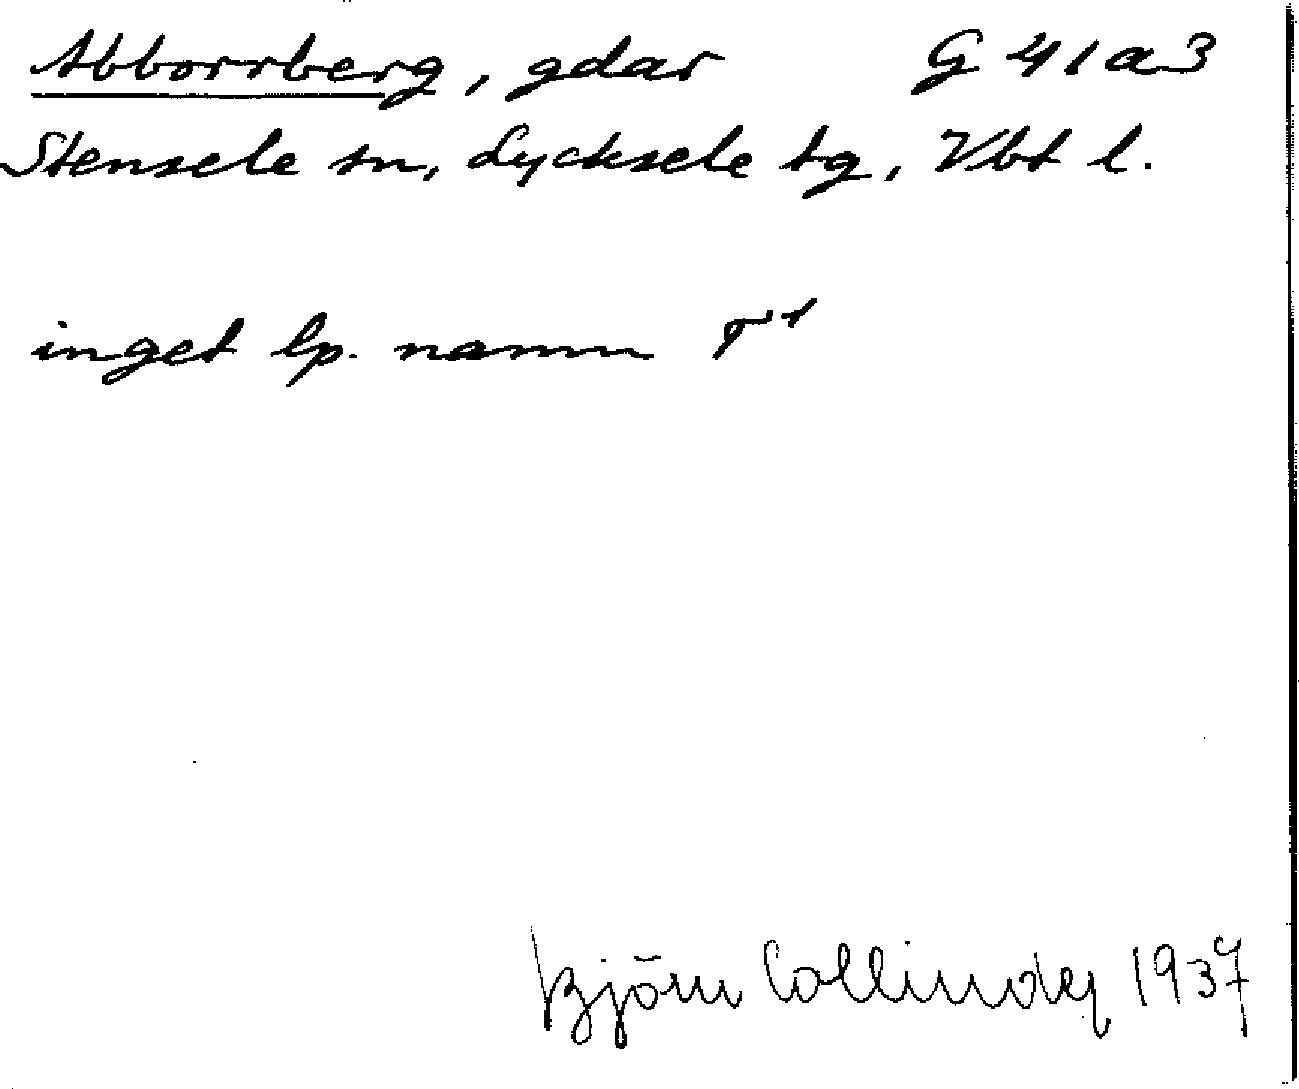 Abborrberg, gdar G 41 a 3
Stensele sn, Lycksele tg, Vbt l.
inget lp. namn
Björn Collinder 1937